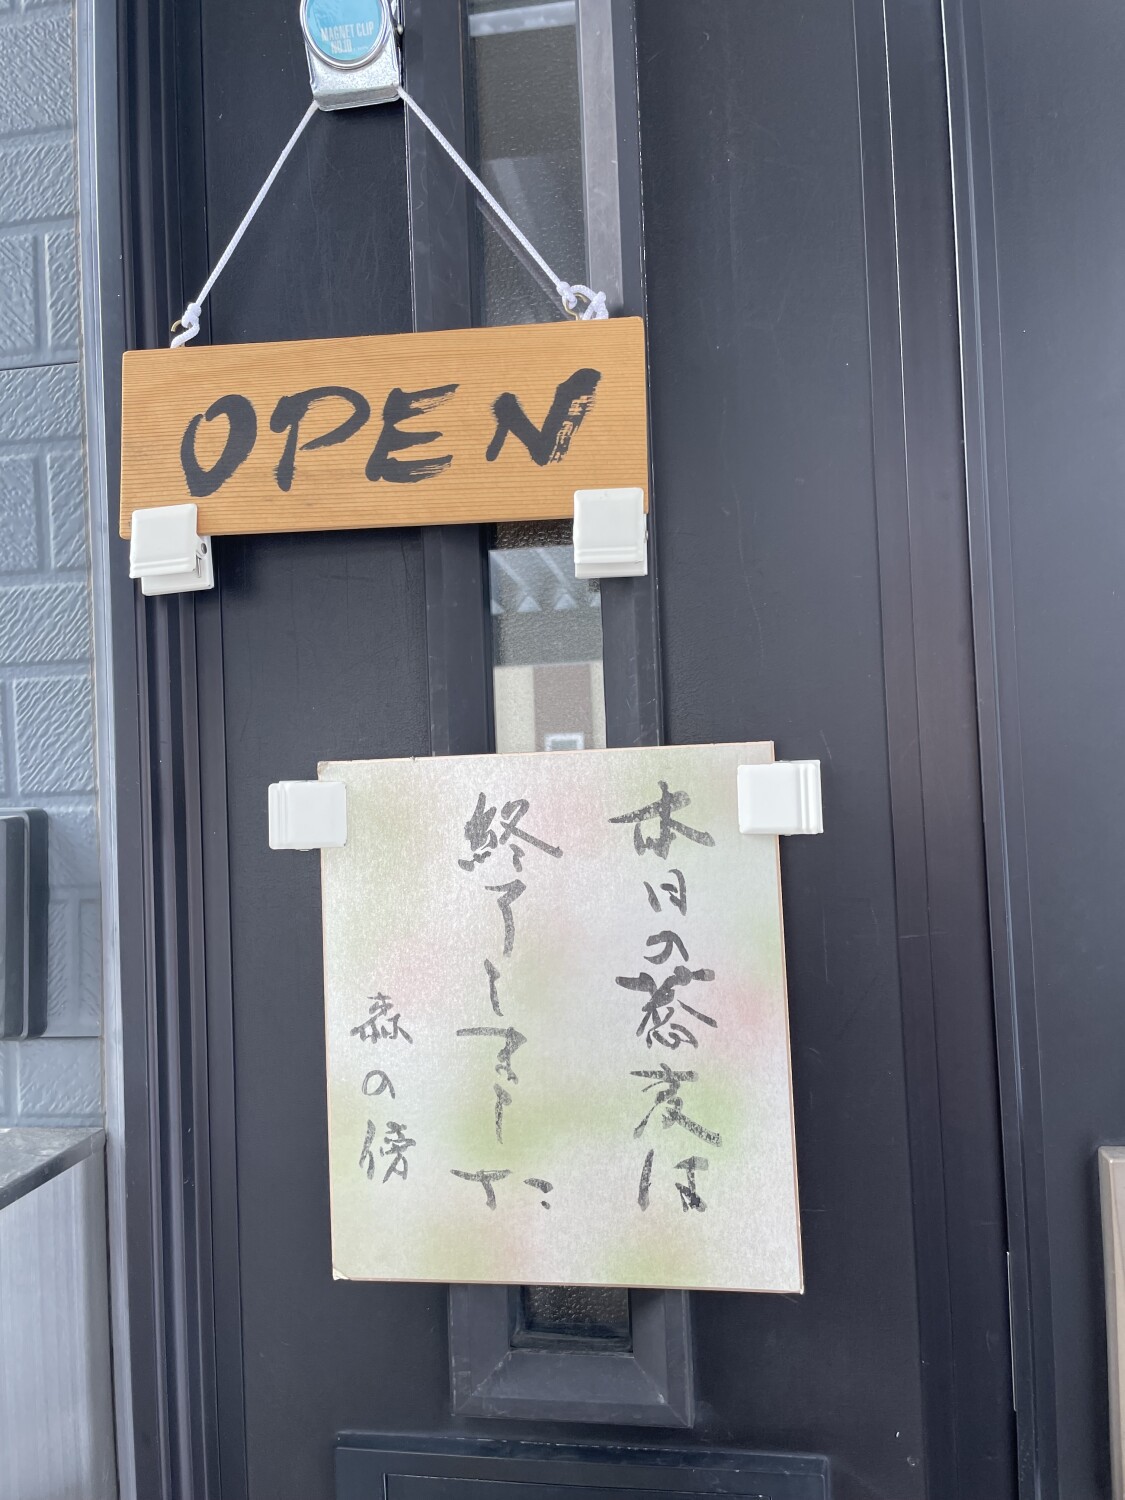 MAGNET CLIP
OPEN
本日の蕎麦は
終了しました
森の傍